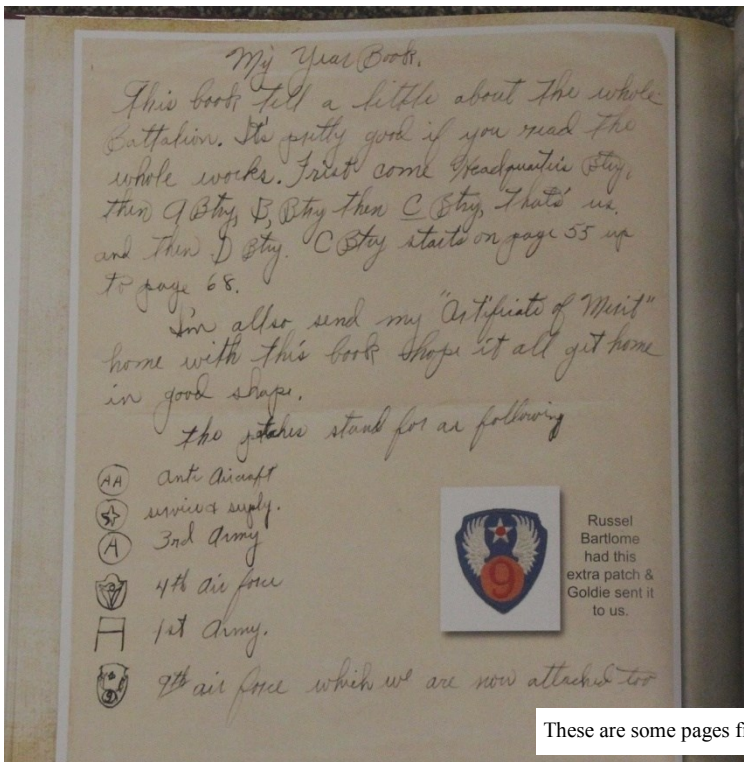 My Year Book.
This book tell a little about the whole
Battalion. It's pretty good if you read the
whole works. Frist come Headquarters Btry,
then A Btry, B, Btry then C Btry, That's us.
and then D Btry. C Btry starts on page 55 up
to page 68.
I'm allso send my "Certificate of Merit"
home with this book shope it all get home
in good shape.
The patches stand for as following
AA anti Aircraft
service & supply.
A 3rd Army
4th air force
1st Army.
9th air force which we are now attached too
9
Russel
Bartlome
had this
extra patch &
Goldie sent it
to us.
These are some pages